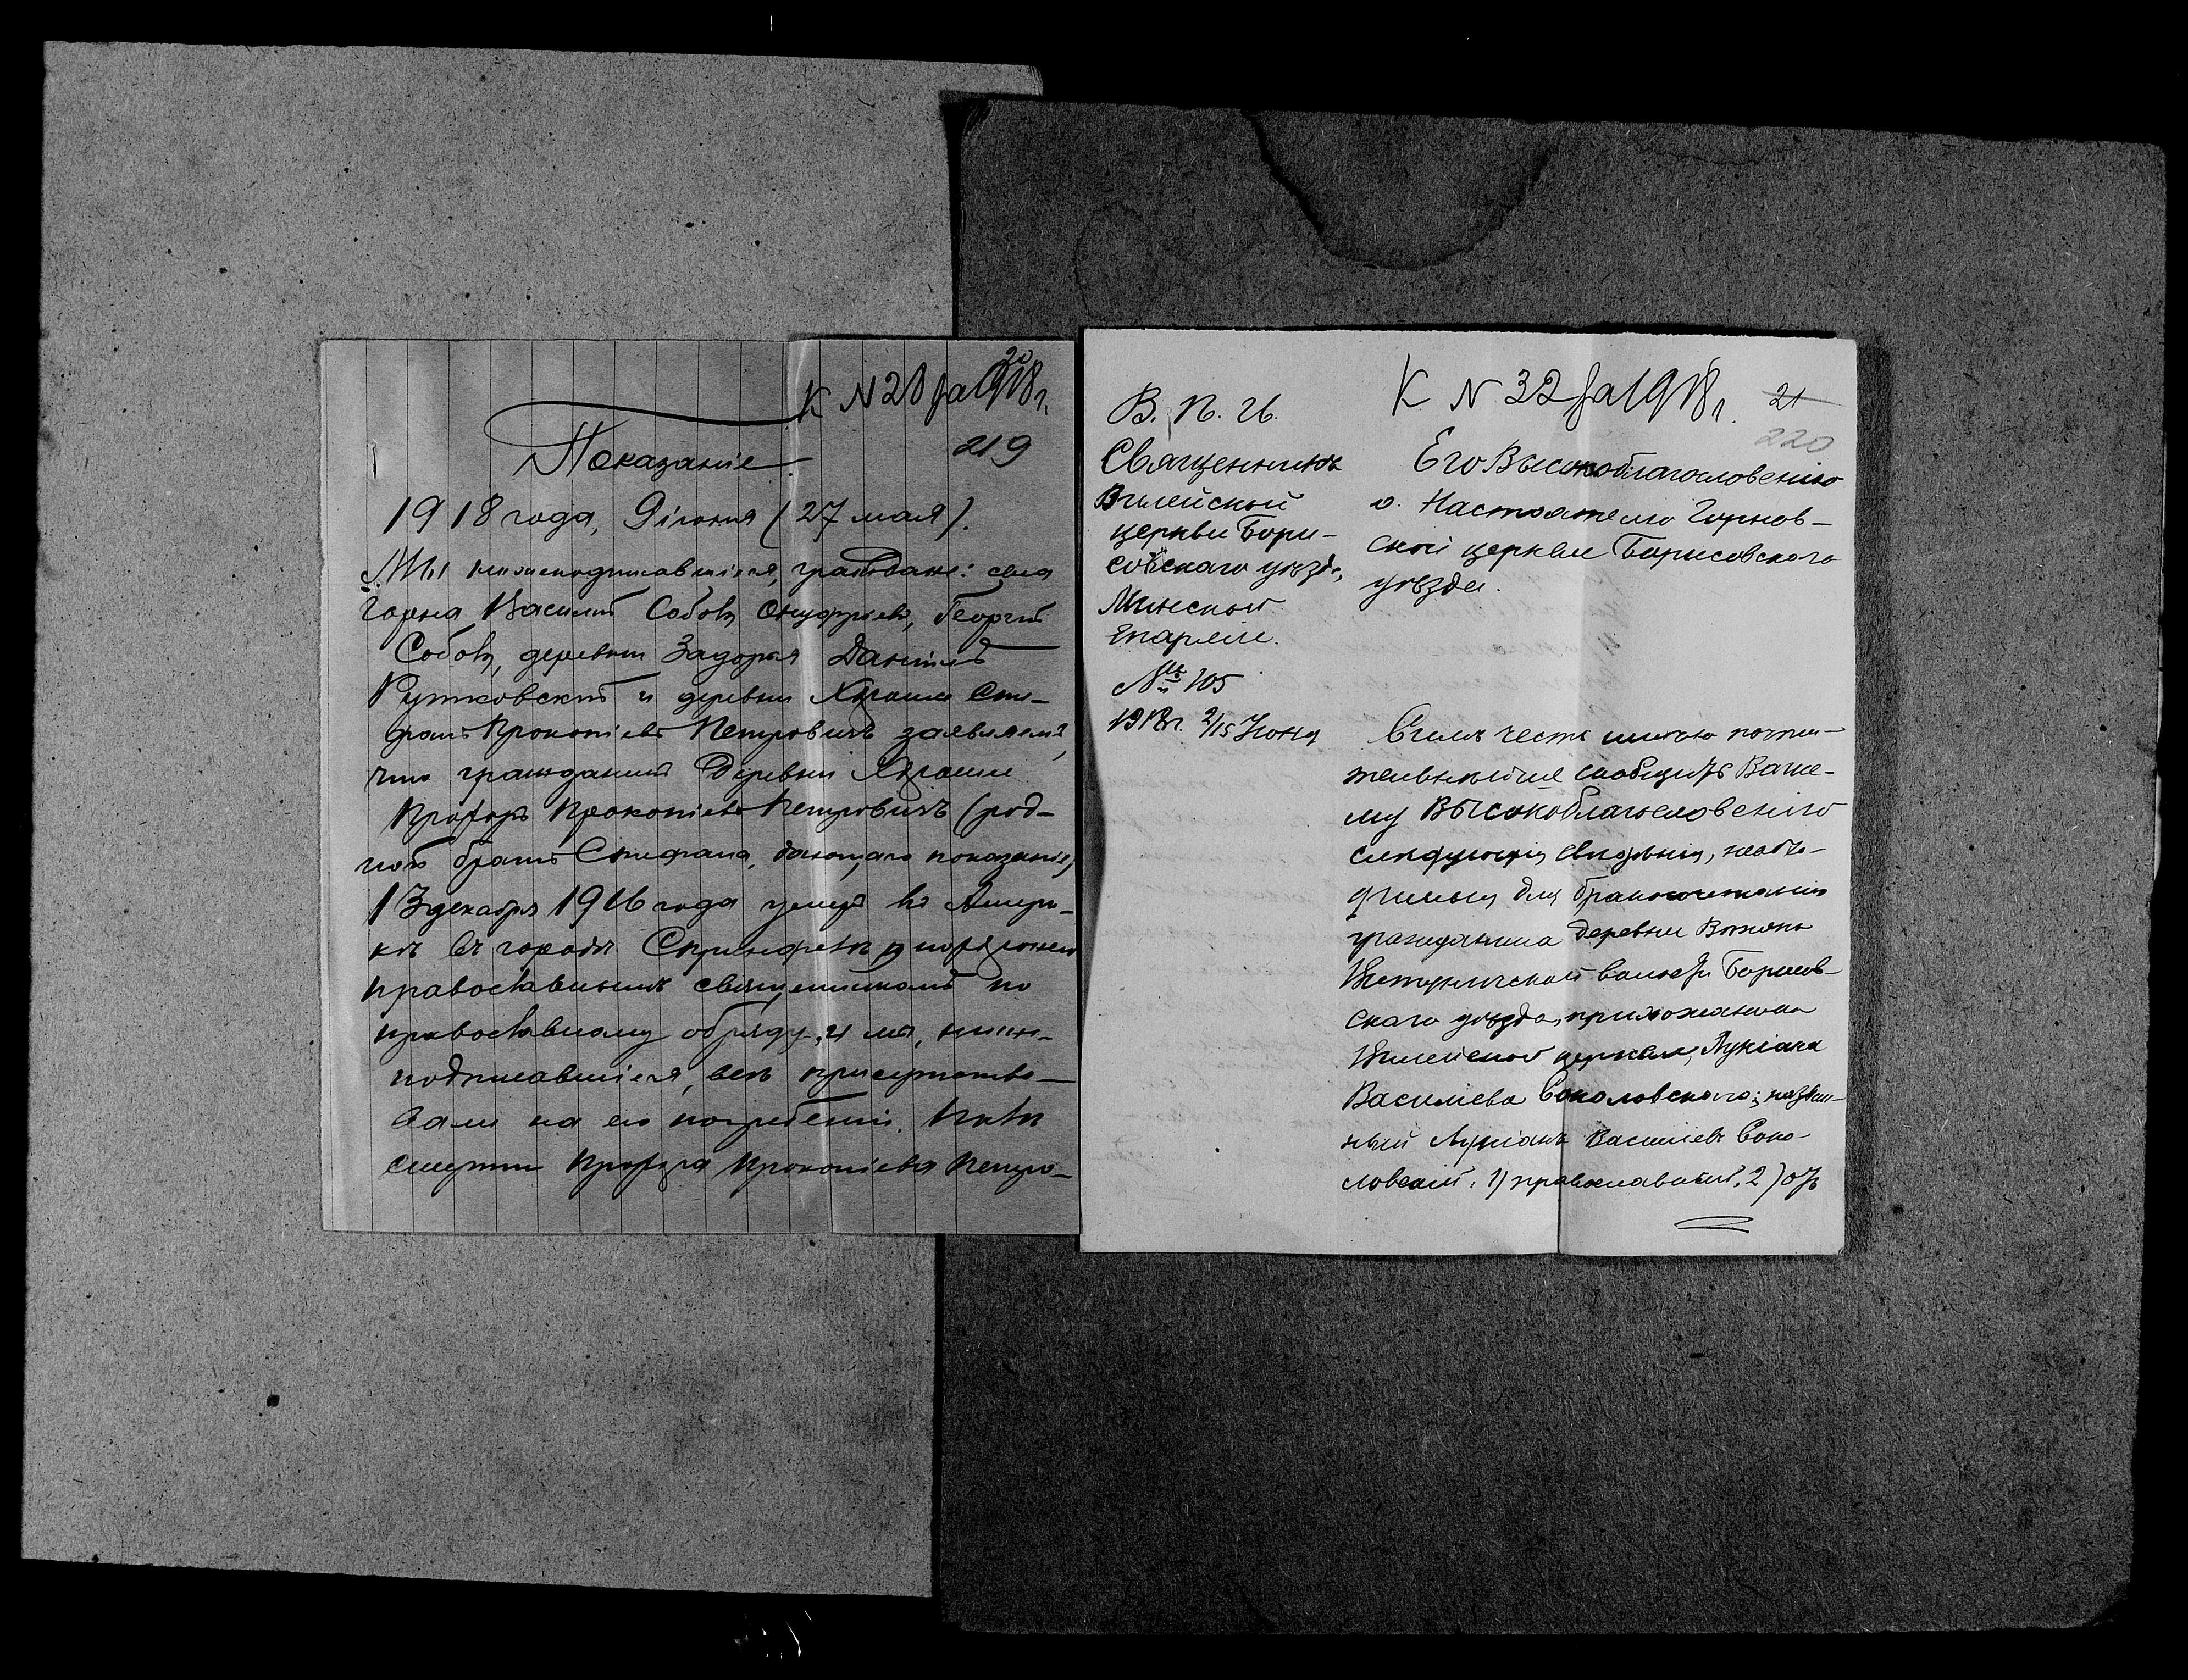 20
К N 28 за 1918 г.
219
Показаніе.
1918 года, 9 іюня (27 мая).
Мы нижеподписавшіеся, граждане: села
Горна Василій Соболь Онуфріевъ, Георгій
Соболь, деревни Задорья Даніилъ
Рутковскій и деревни Сте-
фанъ Прокопіевъ Петровичъ заявляемъ,
что гражданинъ деревни
Прохоръ Прокопіевъ Петровичъ (род-
ной братъ Стефана, дающаго показаніе)
13 декабря 1916 года умеръ въ Амери-
кѣ въ городѣ и погребенъ
православнымъ священникомъ по
православному обряду, и мы, ниже-
подписавшіеся, всѣ присутство-
вали на его погребеніи.
смерти Прохора Прокопіева Петро-
К N 32 за 1918 г.
21
220
В. П. И.
Священникъ
Вилейской
церкви Бори-
совскаго уѣзда,
Минской
Епархіи.
№ 105
1918 г. 2/15 Іюня
Его Высокоблагословенію
о. Настоятелю Горнов-
ской церкви Борисовского
уѣзда.
Симъ честь имѣю почти-
тельнѣйше сообщить Ваше-
му Высокоблагословенію
слѣдующія свѣдѣнія, необхо-
димыя для бракосочетанія
гражданина деревни
волости Борисов-
скаго уѣзда, прихожанина
церкви, Лукіана
Василіева Соколовскаго; назван-
ный Лукіанъ Василіевъ Соко-
ловскій: 1) православный, 2) отъ